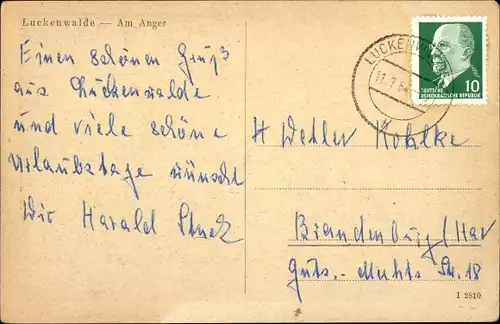 Luckenwalde — Am Anger
Einen schönen Gruß
aus Luckenwalde
und viele schöne
Urlaubstage wünscht
Dir Harald
LUCKENWALDE
11.7.64
10
DEUTSCHE
DEMOKRATISCHE REPUBLIK
H Detlev Kohlke
Brandenburg/Hav
Guts.-Muths Str. 18
I 2810